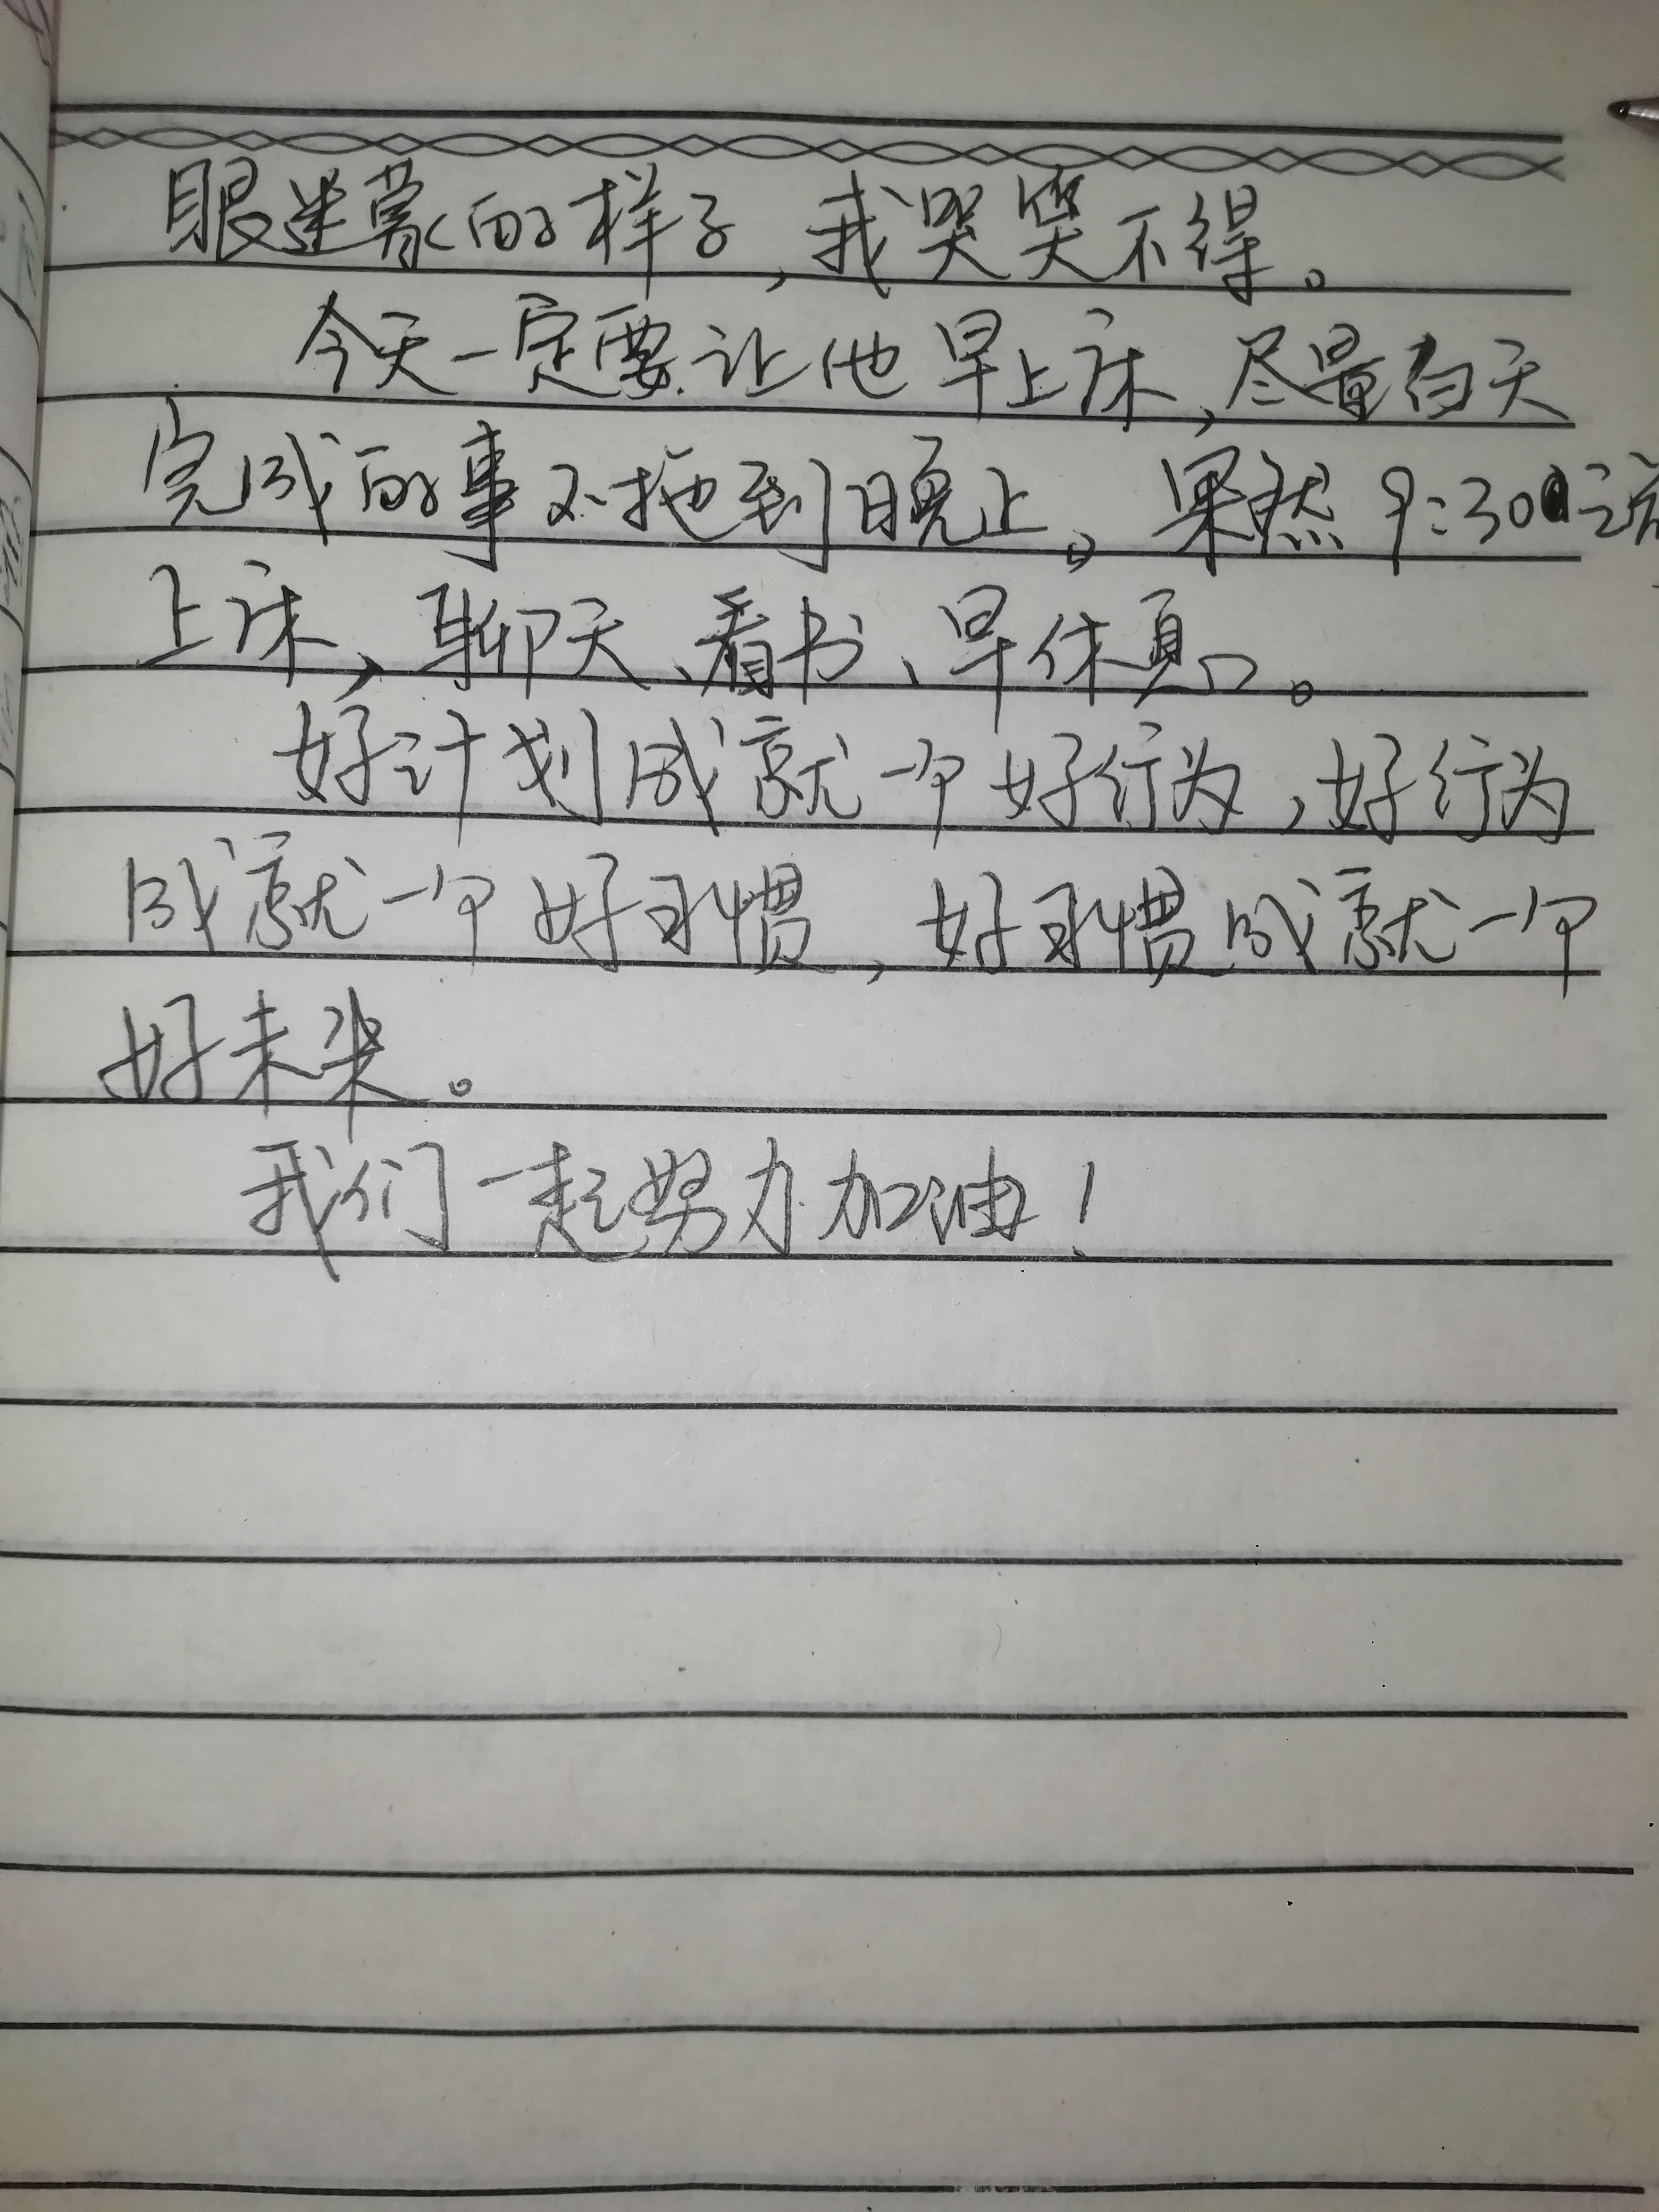 眼迷蒙的样子，我哭笑不得。
今天一定要让他早上床，尽量白天
完成的事不拖到晚上。果然9:30
上床，聊天、看书、早休息。
好计划成就一个好行为，好行为
成就一个好习惯，好习惯成就一个
好未来。
我们一起努力加油！